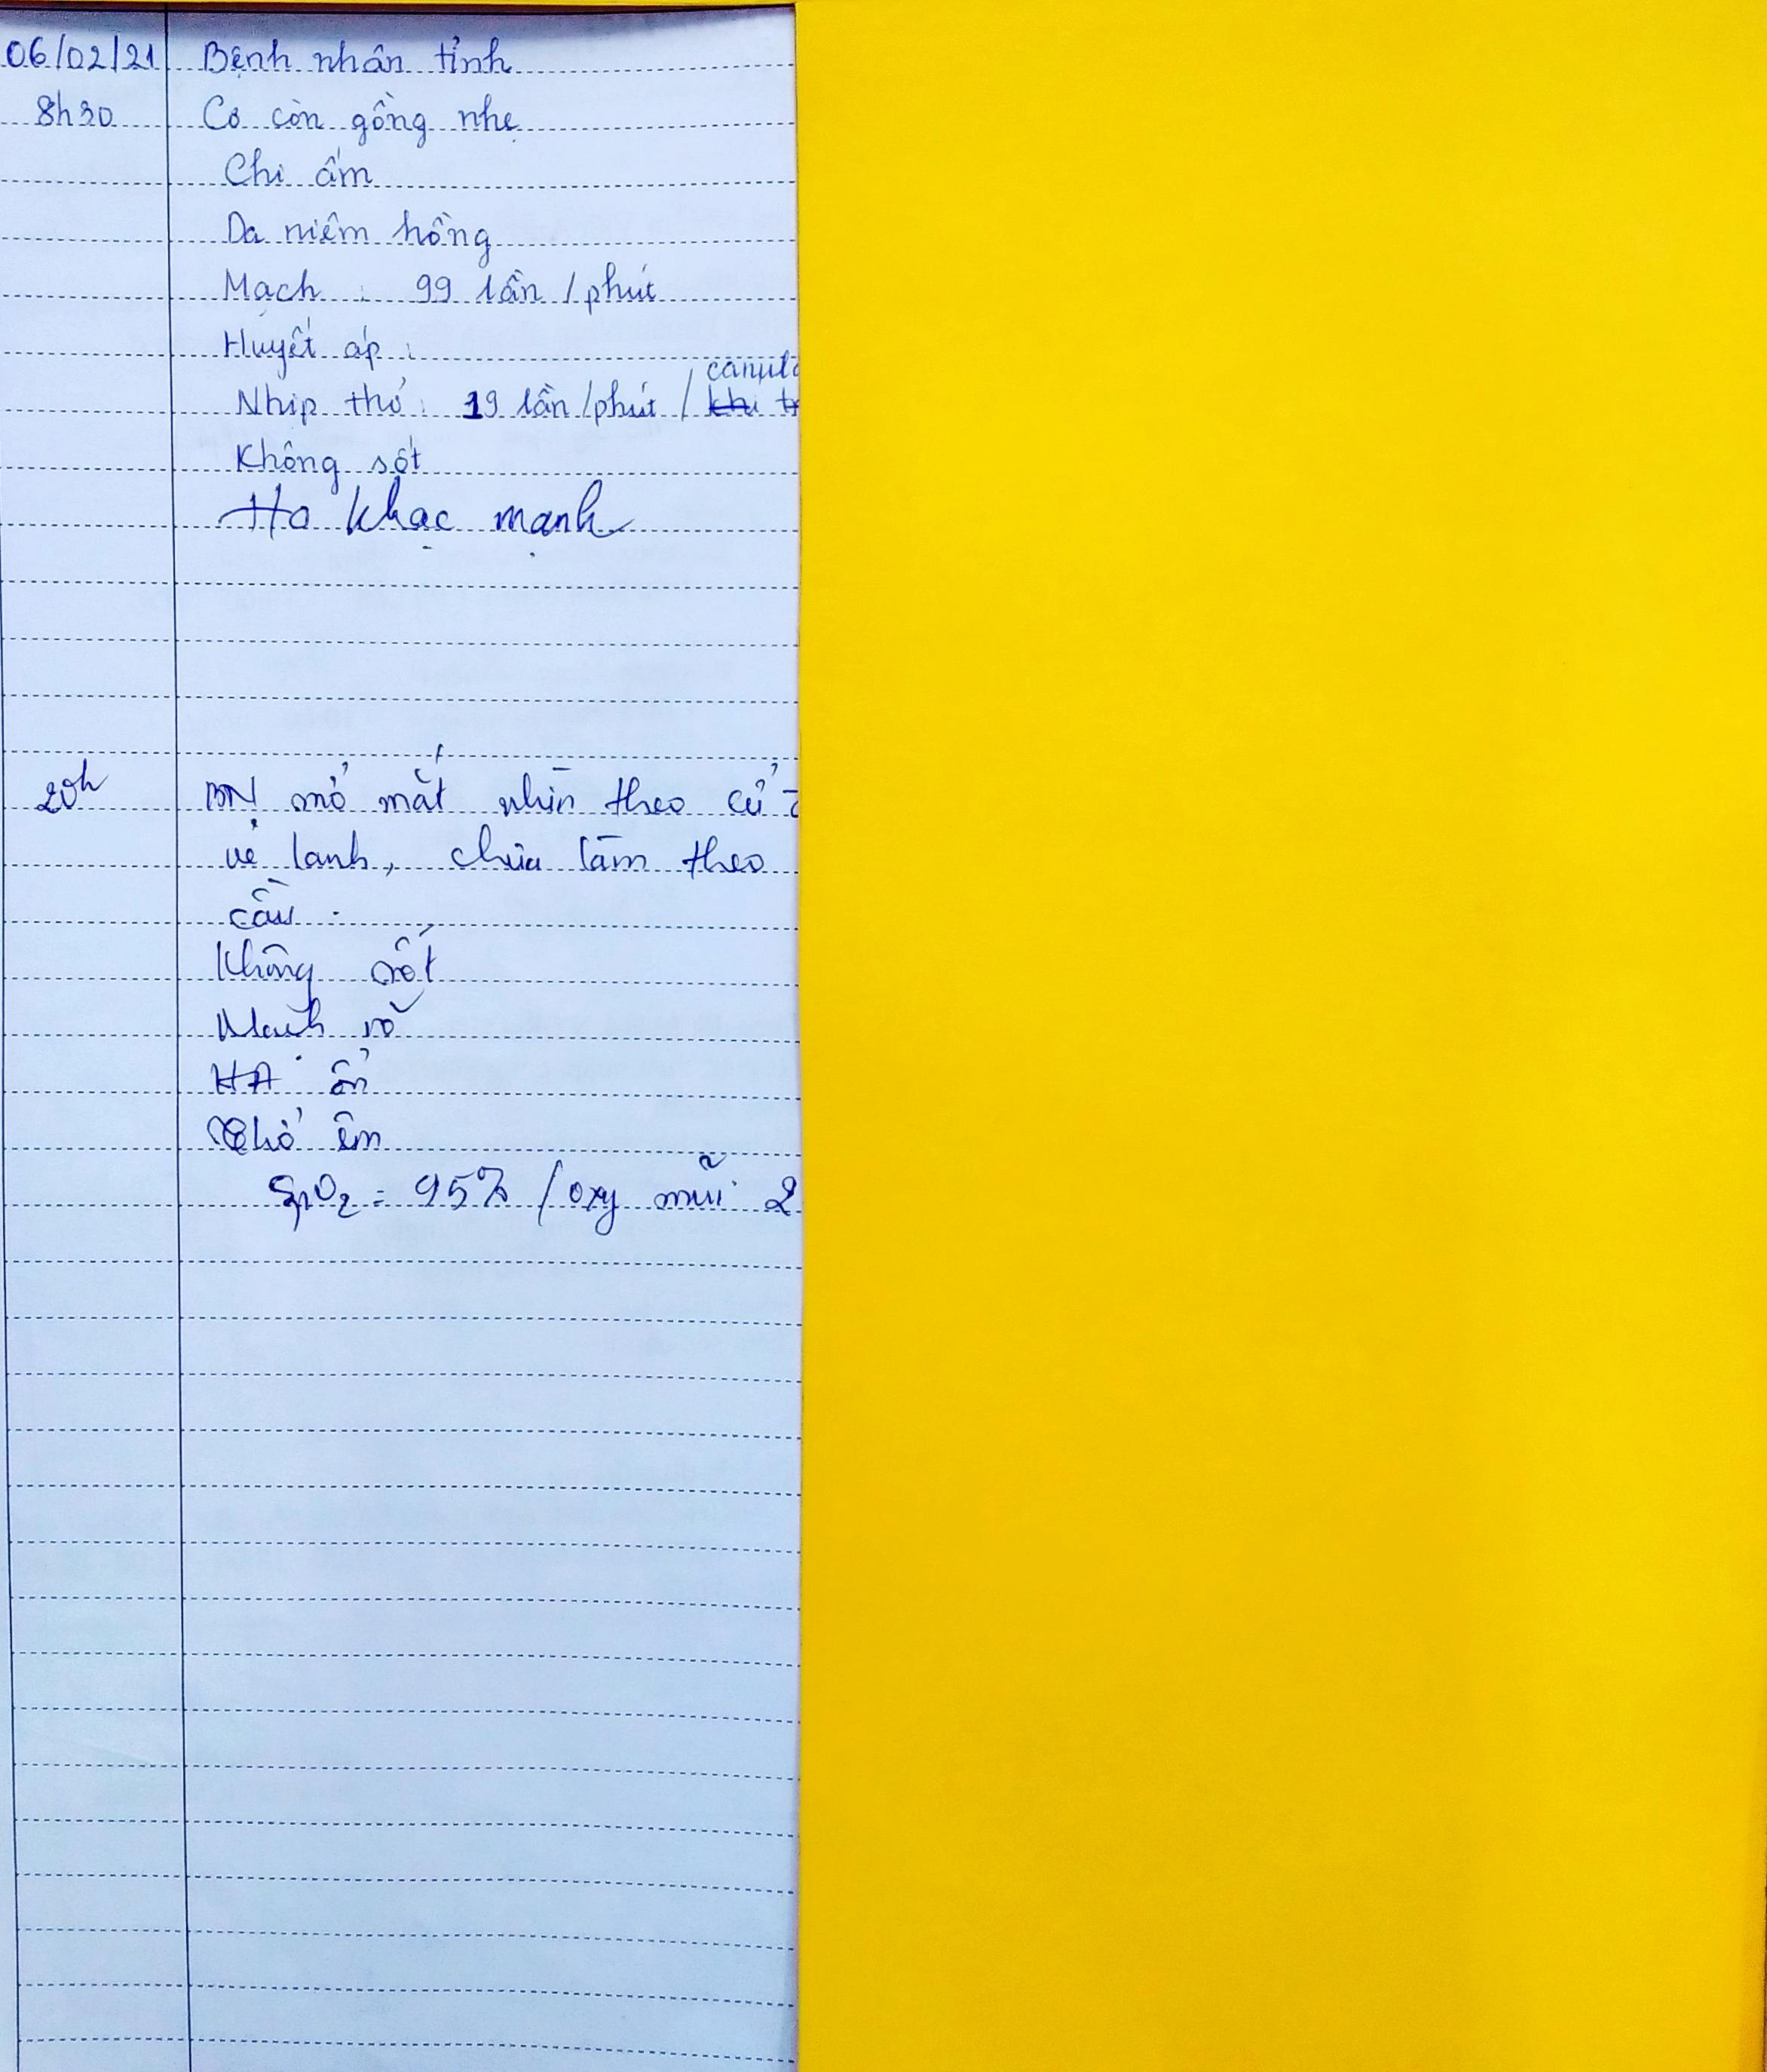 06/02/21 Bệnh nhân tỉnh
8h30 Cơ còn gồng nhẹ
Chi ấm
Da niêm hồng
Mạch : 99 lần / phút
Huyết áp :
canul
Nhịp thở : 19 lần / phút / khí tr
Không sốt
Ho khạc mạnh
20h BN mở mắt nhìn theo cử
vẻ lanh, chưa làm theo
cầu.
Không sốt
Mạch rõ
HA ổn
Thở êm
SpO2 = 95% / oxy mũi 2